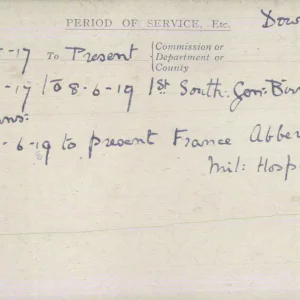 PERIOD OF SERVICE, Etc.
-17 To Present
Commission or
Department or
County
-17 to 8-6-19 1st South: Gen:
-6-19 to present France Abbe
Mil: Hosp